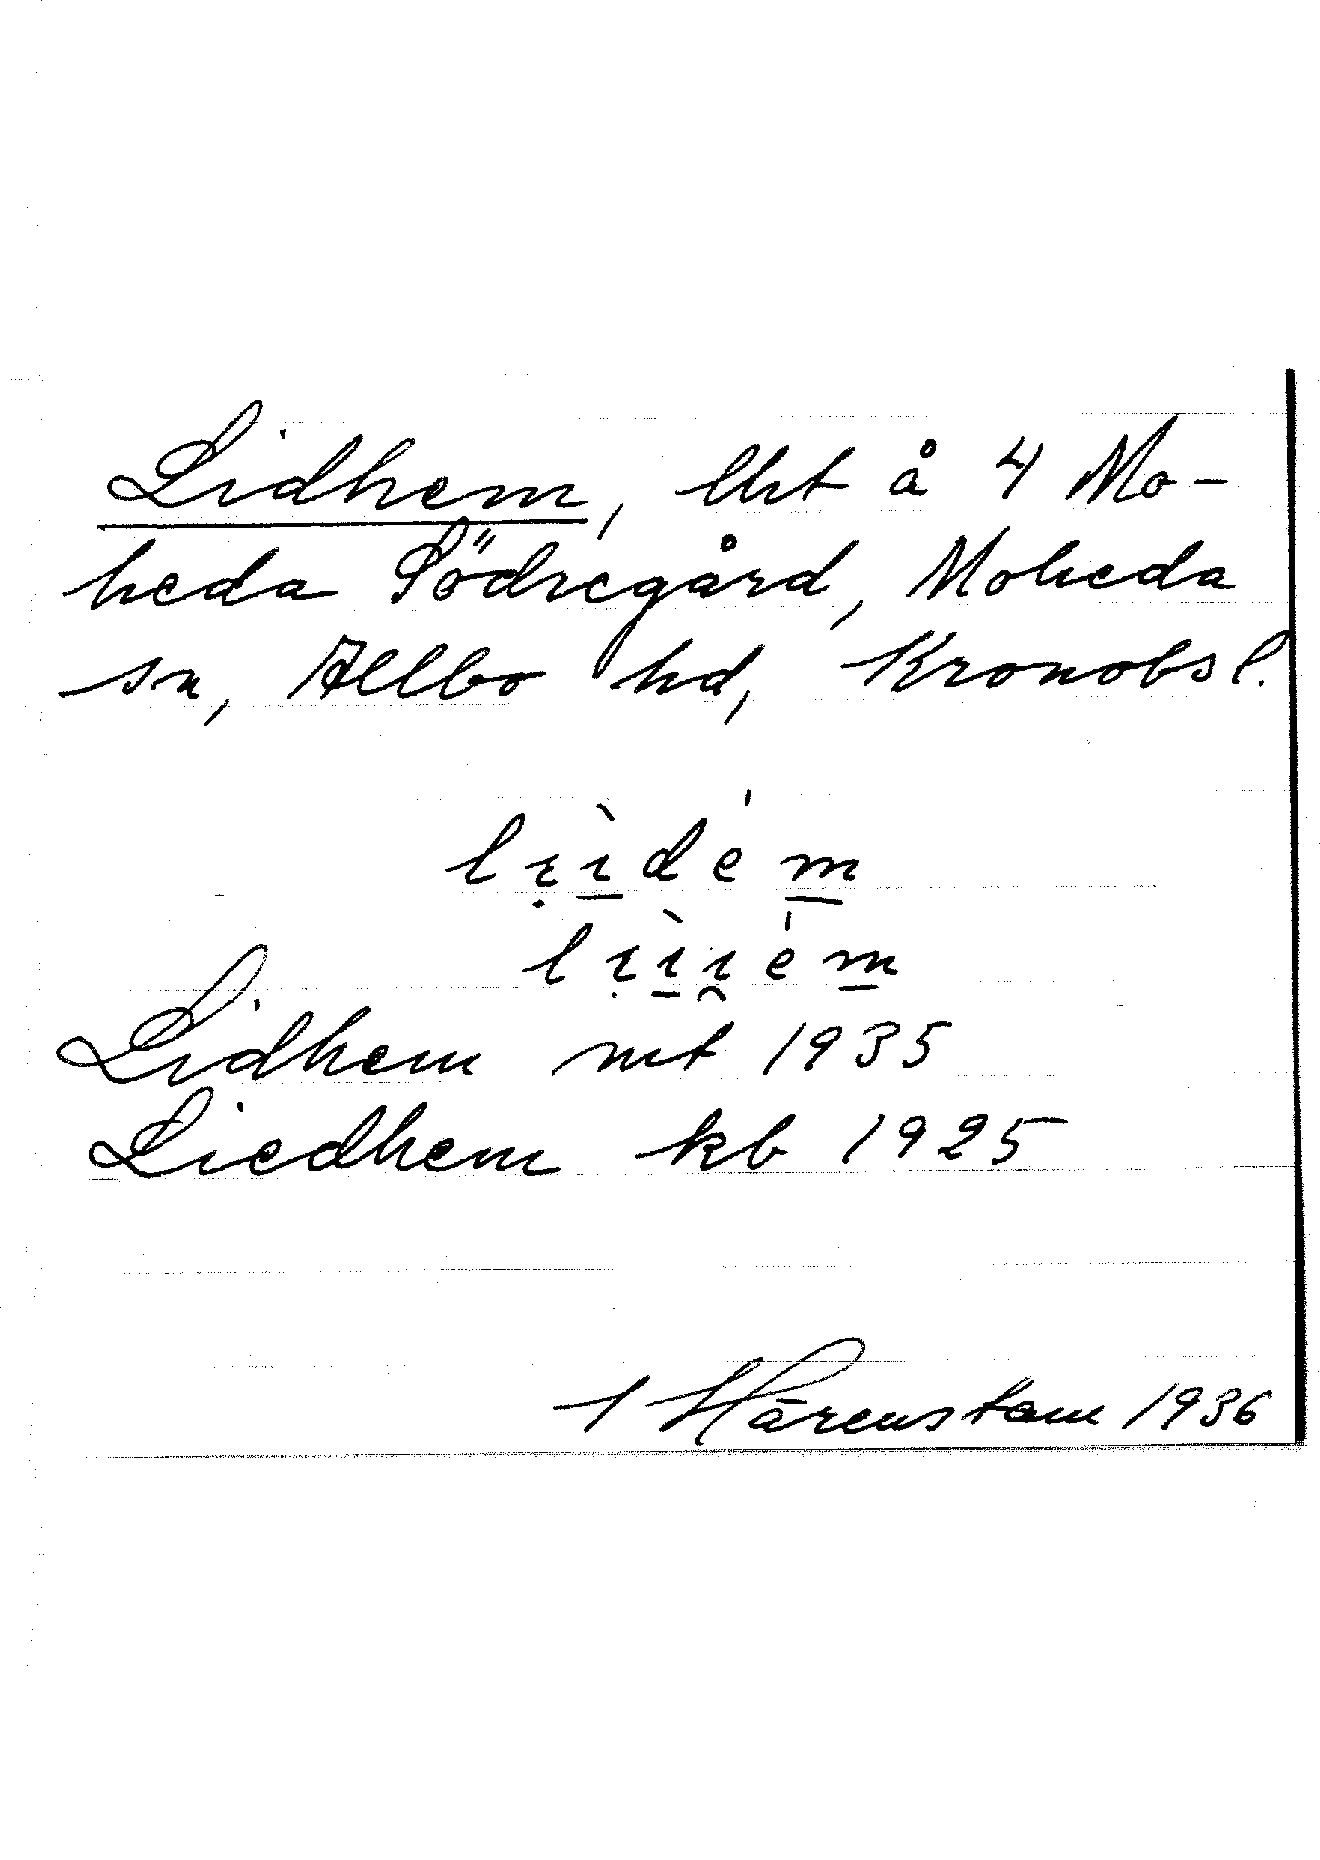 Lidhem, lht å 4 Mo-
heda Södregård, Moheda
sn, Allbo hd, Kronobs l.
lı̣ı̱̀dėm̱
lı̣ı̱̀ı̯ėm̱
Lidhem mt 1935
Liedhem kb 1925
1 Hårenstam 1936